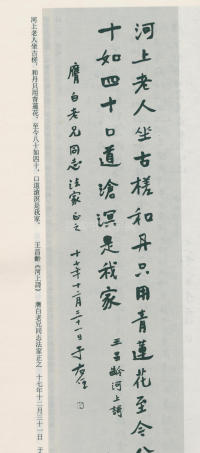 河上老人坐古槎和丹只用青蓮花至今八
十如四十口道滄溟是我家
王昌齡河上詩
膺白老兄同志法家正之
十七年十二月三十一日 于右任
河上老人坐古槎，和丹只用青蓮花。至今八十如四十，口道滄溟是我家。
王昌齡《河上詩》 膺白老兄同志法家正之 十七年十二月三十一日 于